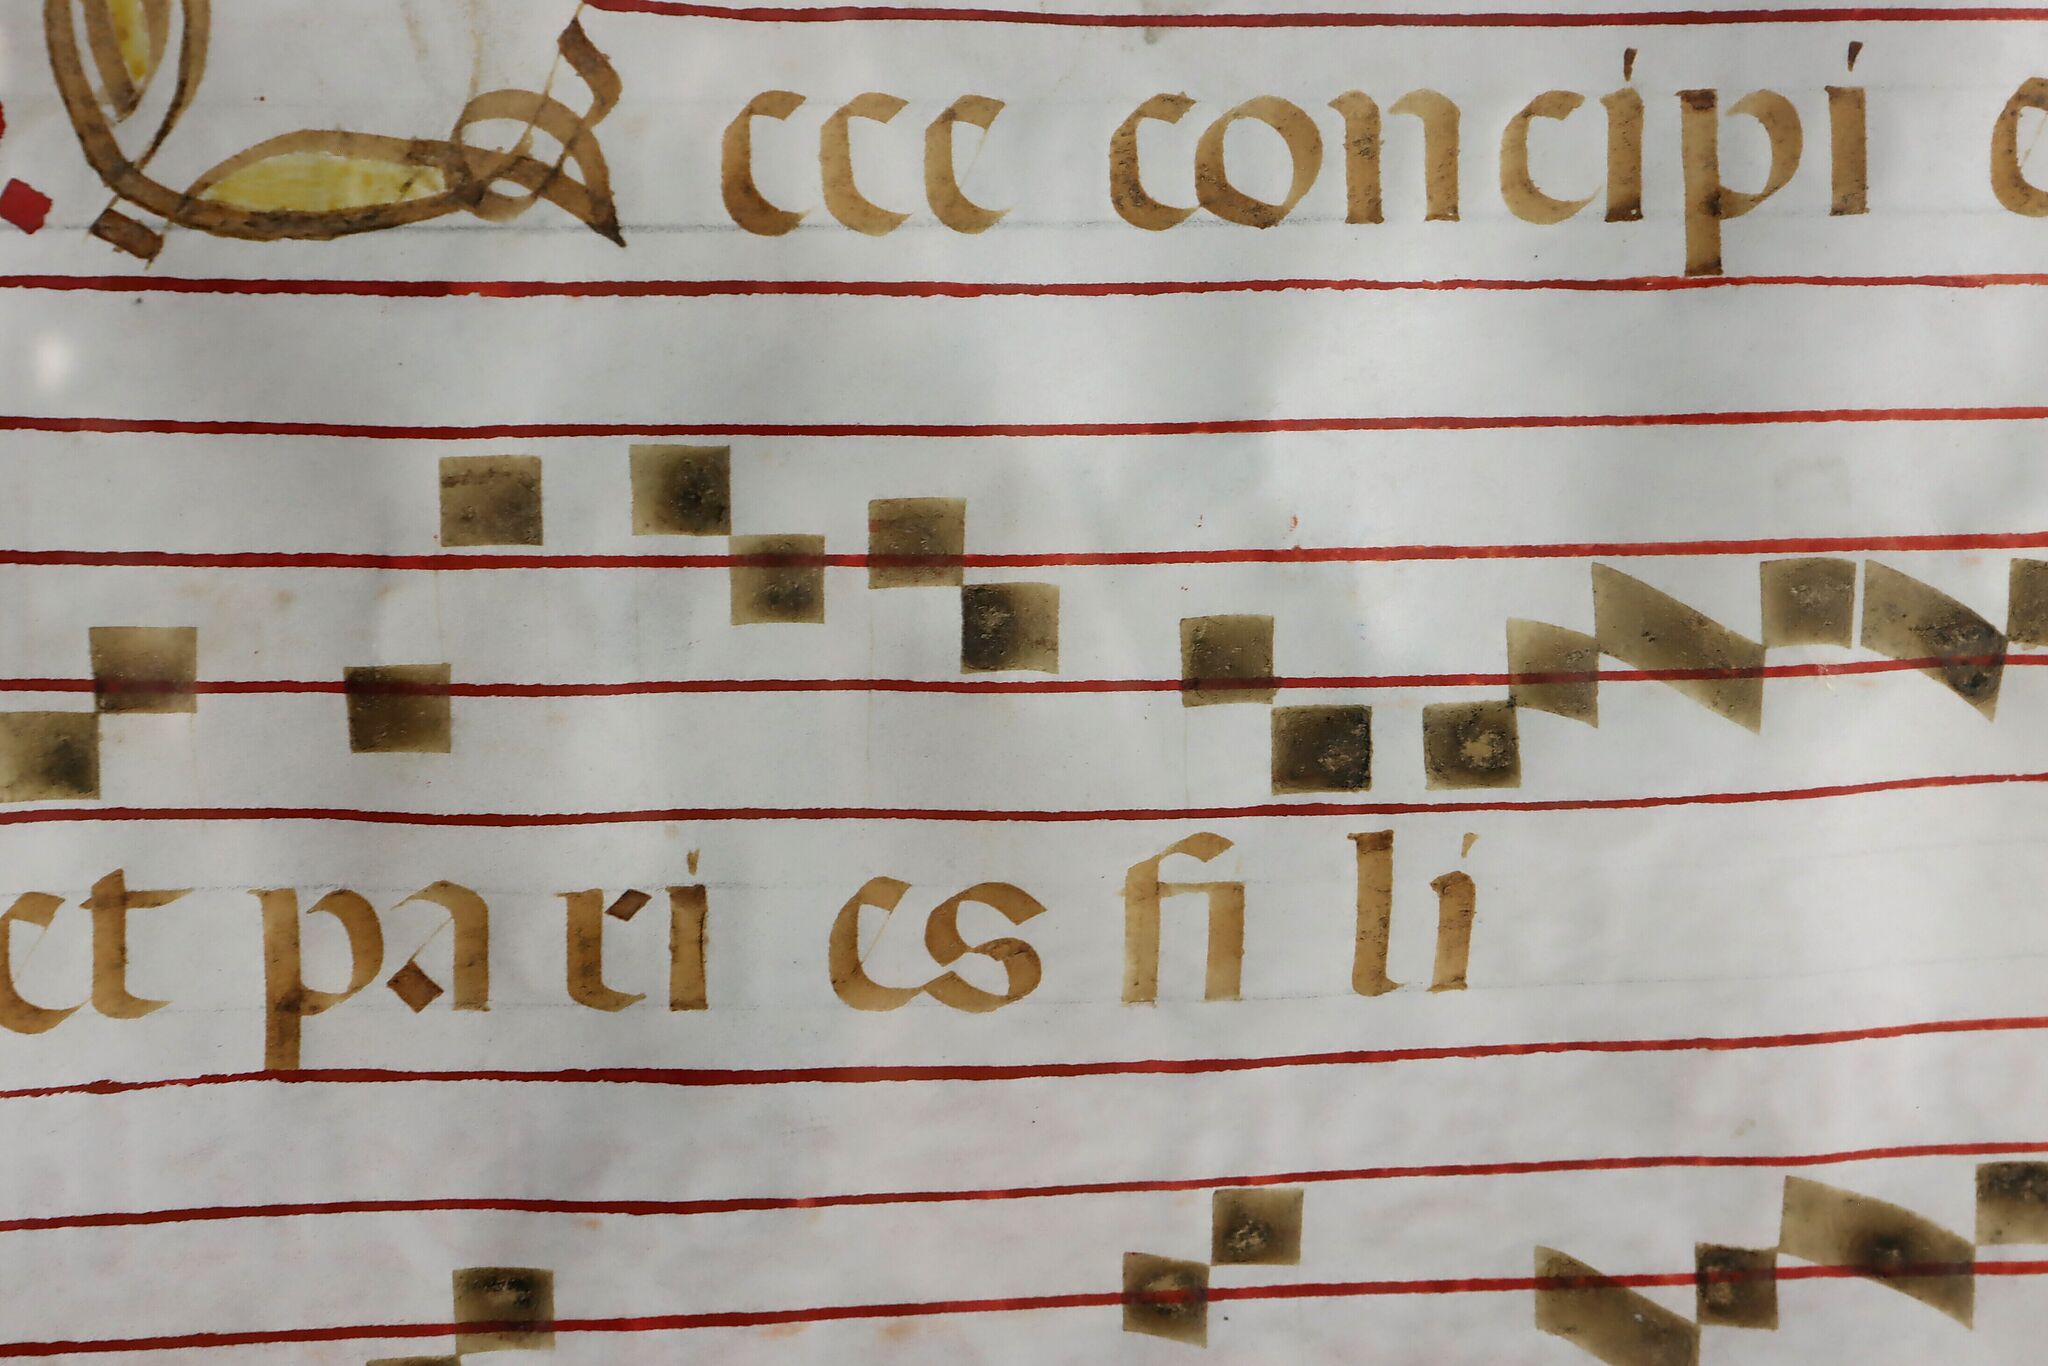 Ecce concipi
et pari es fi li